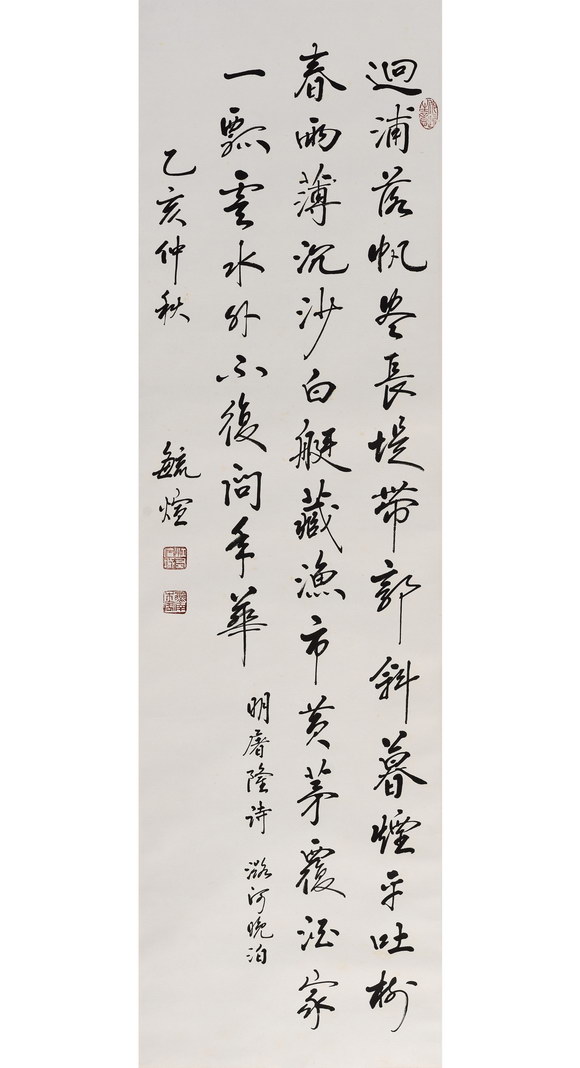 迴浦落帆登長堤帶郭斜暮煙平吐樹
春雨薄沉沙白艇藏漁市黄茅覆酒家
一瓢雲水外不復問年華
明屠隆诗 潞河晚泊
乙亥仲秋
毓煊